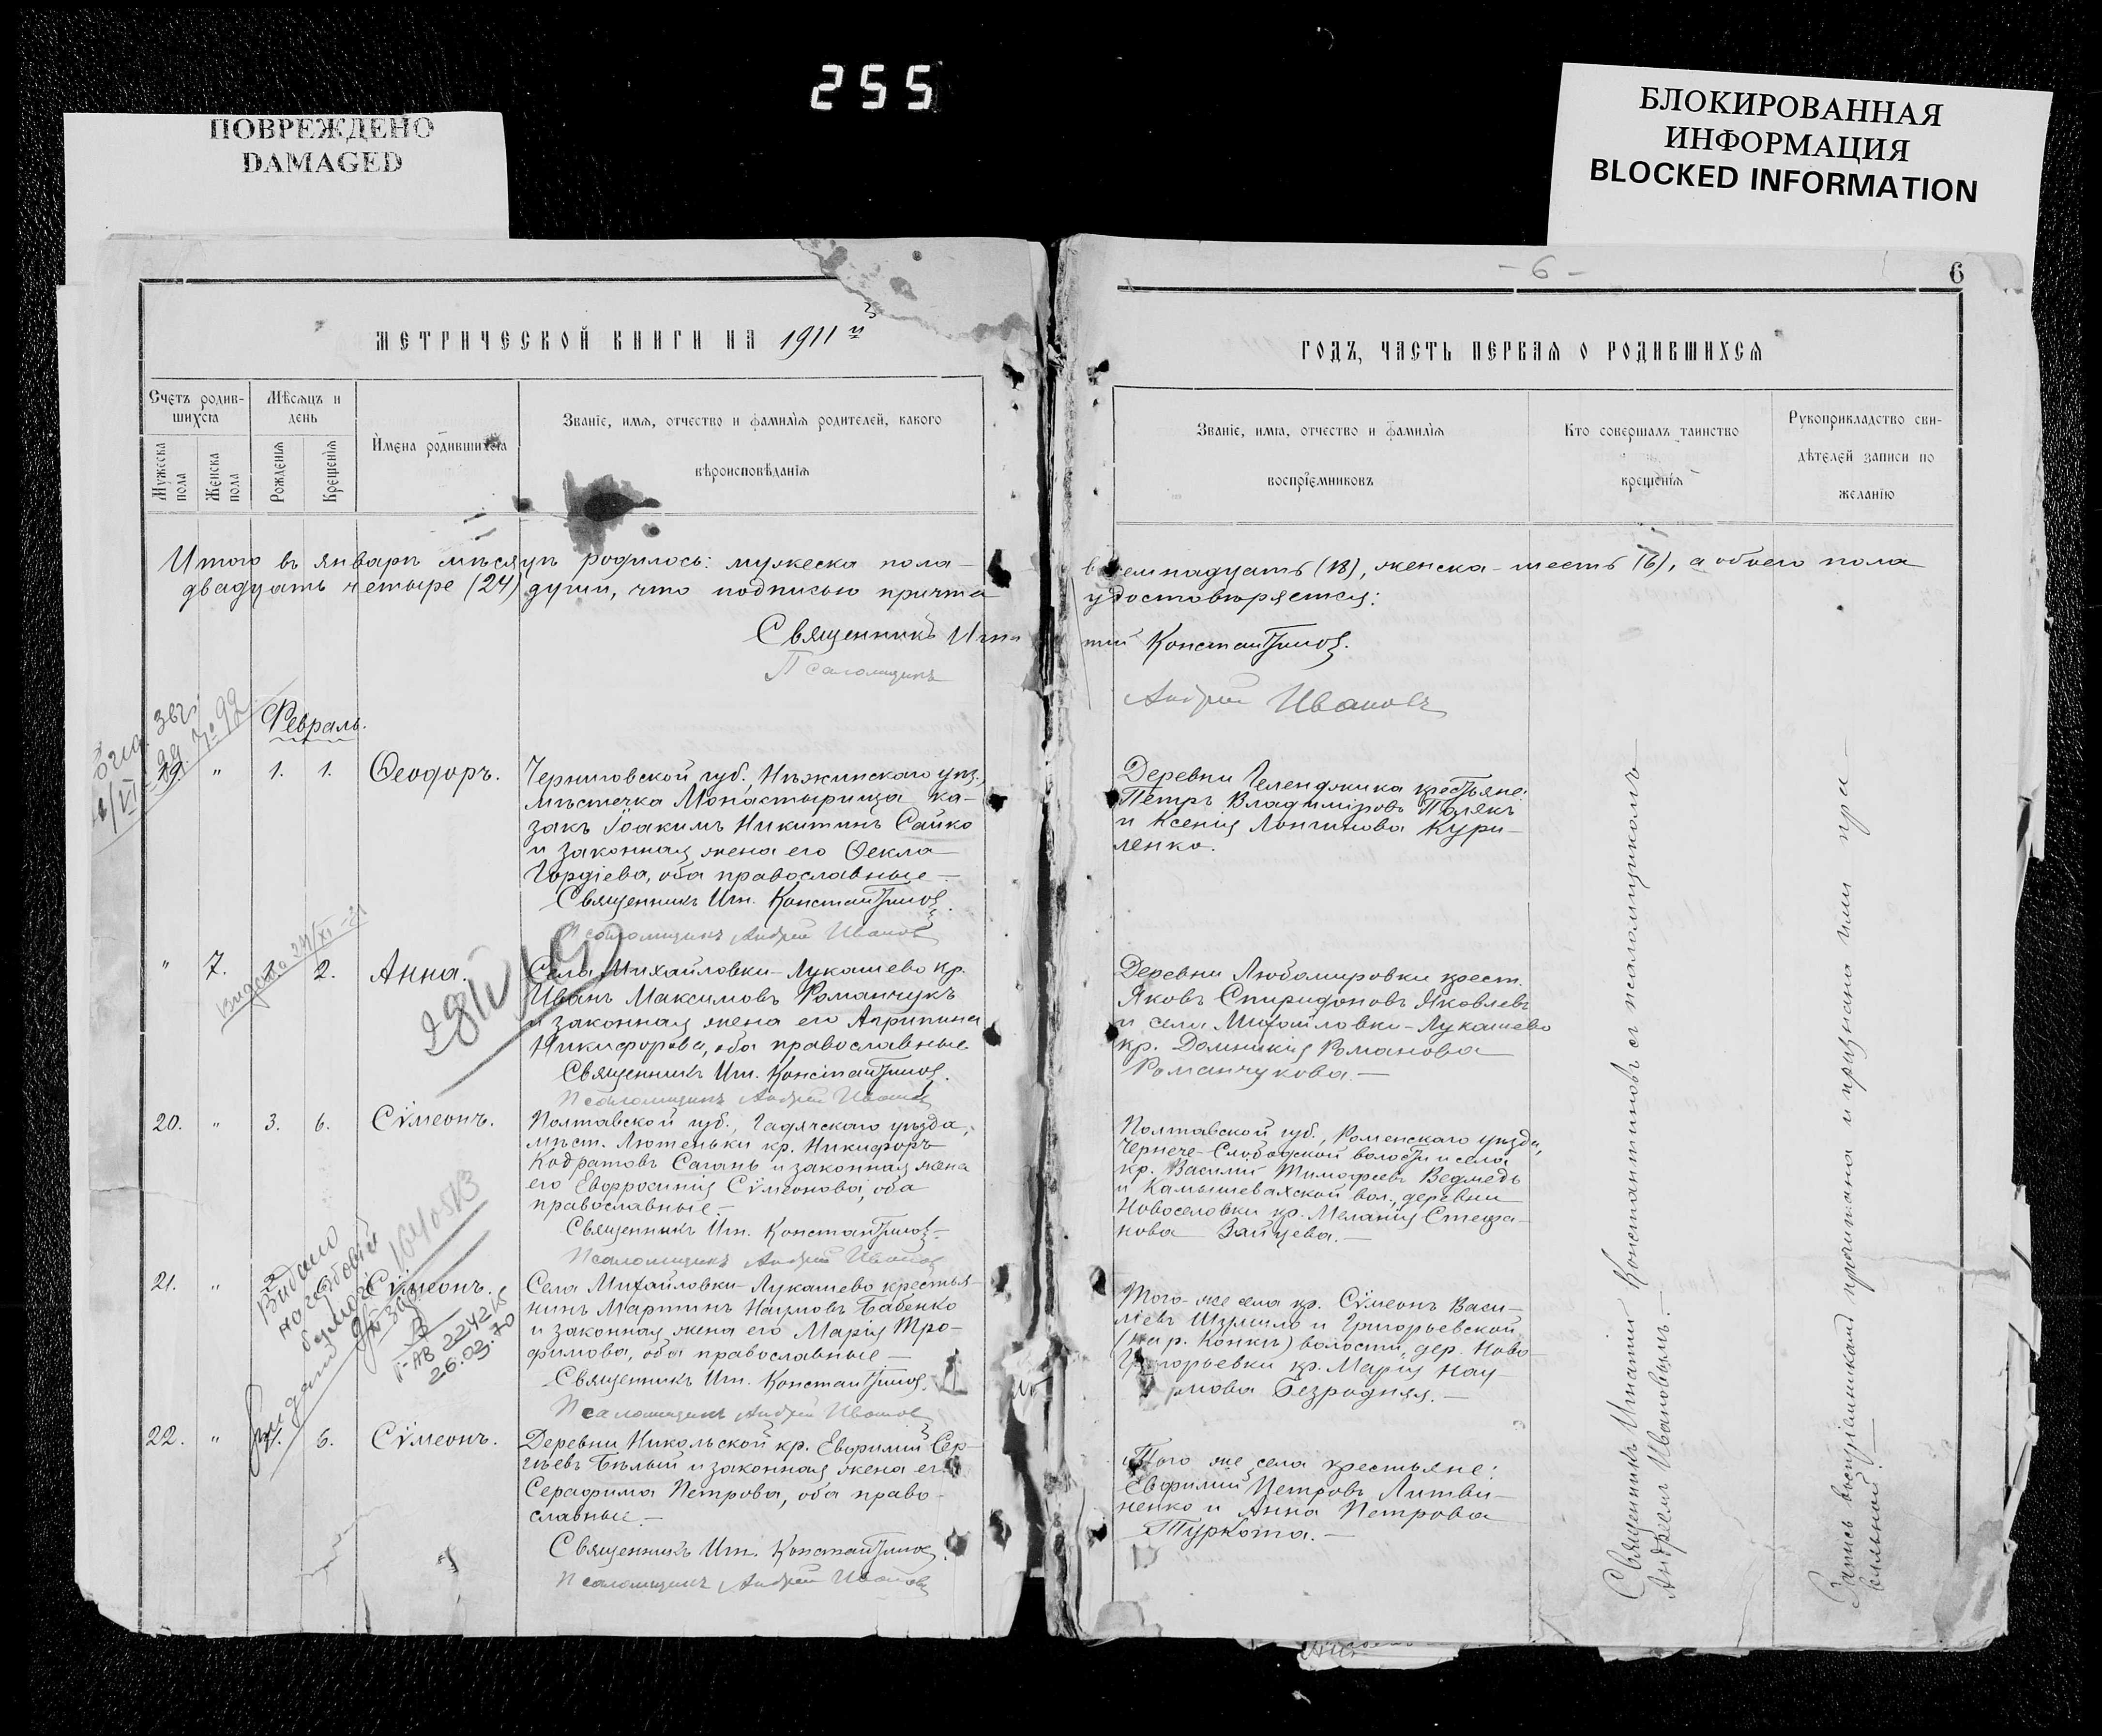 255
ПОВРЕЖДЕНО
DAMAGED
БЛОКИРОВАННАЯ
ИНФОРМАЦИЯ
BLOCKED INFORMATION
- 6 -
6
МЕТРИЧЕСКОЙ КНИГИ НА 1911й
ГОДЪ, ЧАСТЬ ПЕРВАЯ О РОДИВШИХСЯ
Счетъ родив-
шихся
Мужеска
пола
Женска
пола
Мѣсяцъ и
день
Рожденія
Крещенія
Имена родившихся
Званіе, имя, отчество и фамилія родителей, какого
вѣроисповѣданія
Званіе, имя, отчество и фамилія
воспріемниковъ
Кто совершалъ таинство
крещенія
Рукоприкладство сви-
дѣтелей записи по
желанію
Итого въ январѣ мѣсяцѣ родилось: мужеска пола – восемнадцать (18), женска – шесть (6), а обоего пола
двадцать четыре (24) души, что подписью причта удостовѣряется:
Священникъ Игнатій Константиновъ.
Псаломщикъ Андрей Ивановъ
Февраль.
19. " 1. 1. Ѳеодоръ.
Черниговской губ., Нѣжинскаго уѣз.,
мѣстечка Монастырища ка-
закъ Іоакимъ Никитинъ Сайко
и законная жена его Ѳекла
Гордіева, оба православные –
Священникъ Игн. Константиновъ.
Псаломщикъ Андрей Ивановъ
Деревни Геленджика крестьяне:
Петръ Владиміровъ Полякъ
и Ксенія Лонгинова Кури-
ленко.
" 7. 1. 2. Анна.
Видано 24/XI-21
Села Михайловки-Лукашево кр.
Иванъ Максимовъ Романчукъ
и законная жена его Агрипина
Никифорова, оба православные
Священникъ Игн. Константиновъ.
Псаломщикъ Андрей Ивановъ
Деревни Любомировки крест.
Яковъ Спиридоновъ Яковлевъ
и села Михайловки-Лукашево
кр. Домникія Романова
Романчукова. –
20. " 3. 6. Сѵмеонъ.
Полтавской губ., Гадячскаго уѣзда,
мѣст. Лютеньки кр. Никифоръ
Кодратовъ Сагань и законная жена
его Евфросинія Сѵмеонова, оба
православные. –
Священникъ Игн. Константиновъ –
Псаломщикъ Андрей Ивановъ
Полтавской губ., Роменскаго уѣзда,
Чернече-Слободской волости и села
кр. Василий Тимофеевъ Ведмедь
и Камышевахской вол., деревни
Новоселовки кр. Меланія Стефа-
нова Зайцева. –
21. " Сѵмеонъ.
Села Михайловки-Лукашево крестья-
нинъ Мартинъ Наумовъ Бабенко
и законная жена его Марія Тро-
фимова, оба православные –
Священникъ Игн. Константиновъ.
Псаломщикъ Андрей Ивановъ
Того-же села кр. Сѵмеонъ Васи-
льевъ Шумило и Григорьевской
(на р. Конкѣ) волости, дер. Ново-
Григорьевки кр. Марія Нау-
мова Безродняя. –
26.03.70
22. " 6. Сѵмеонъ.
Деревни Никольской кр. Евфимий Сер-
гѣевъ Бѣлый и законная жена его
Серафима Петрова, оба право-
славные. –
Священникъ Игн. Константиновъ.
Псаломщикъ Андрей Ивановъ
Того же села крестьяне:
Евфимий Петровъ Литви-
ненко и Анна Петрова
Туркота. –
Священникъ Игнатій Константиновъ съ псаломщикомъ
Андреемъ Ивановымъ. –
Запись воспріемниками прочитана и признана ими пра-
вильной. –